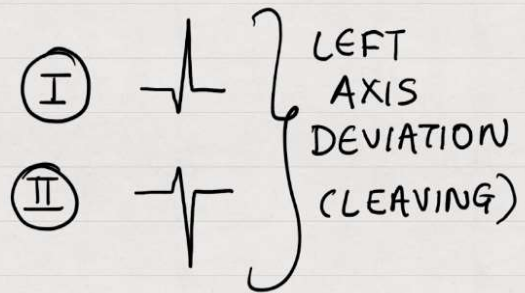 I
LEFT
AXIS
DEVIATION
II
(LEAVING)